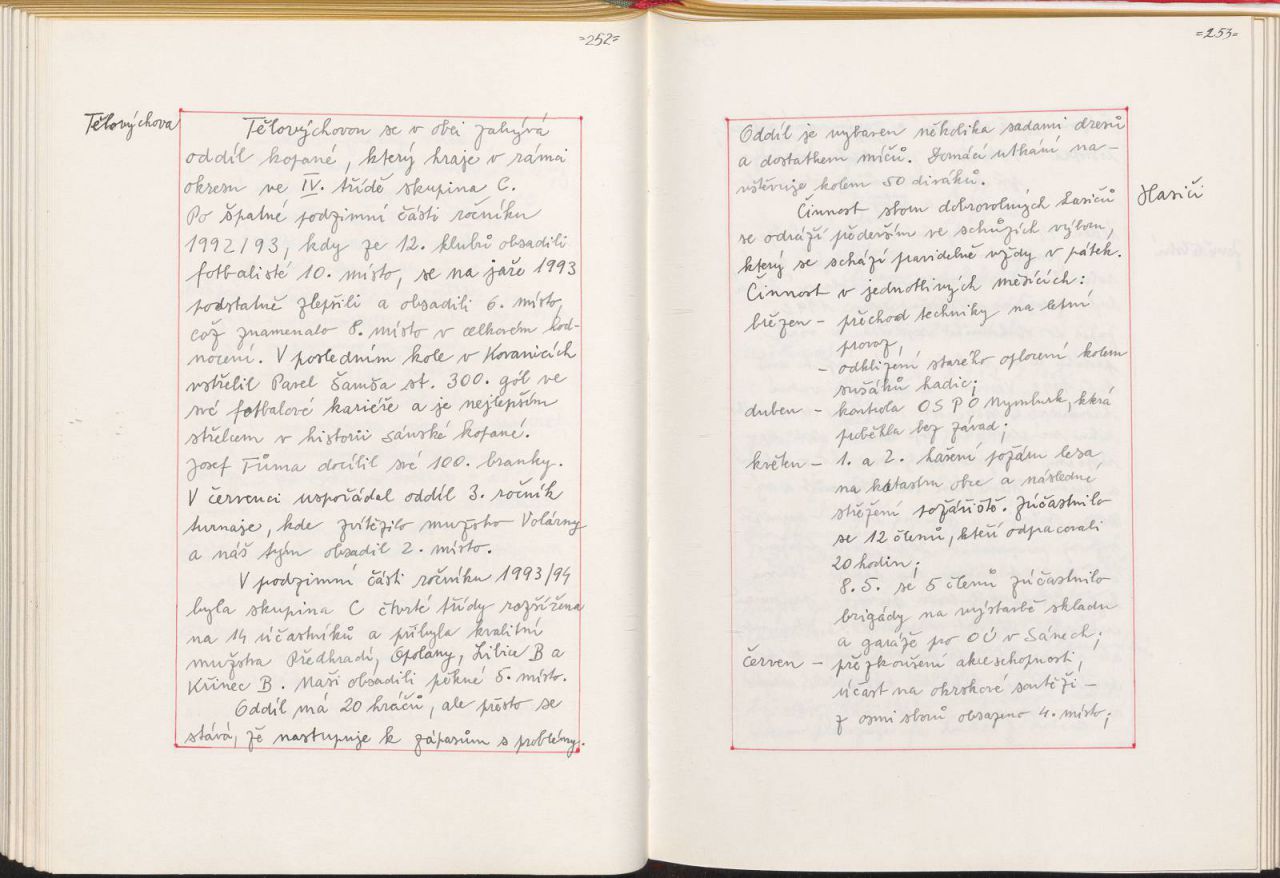 =252=
Tělovýchova
Tělovýchovou se v obci zabývá
oddíl kopané, který hraje v rámci
okresu ve IV. třídě skupina C.
Po špatné podzimní části ročníku
1992/93, kdy ze 12. klubů obsadili
fotbalisté 10. místo, se na jaře 1993
podstatně zlepšili a obsadili 6. místo,
což znamenalo 8. místo v celkovém hod-
nocení. V posledním kole v Kovanicích
vstřelil Pavel Šamša st. 300. gól ve
své fotbalové kariéře a je nejlepším
střelcem v historii sánské kopané.
Josef Tůma docílil své 100. branky.
V červenci uspořádal oddíl 3. ročník
turnaje, kde zvítězilo mužstvo Volárny
a náš tým obsadil 2. místo.
V podzimní části ročníku 1993/94
byla skupina C čtvrté třídy rozšířena
na 14 účastníků a přibyla kvalitní
mužstva Předhradí, Opolany, Libice B a
Křinec B. Naši obsadili pěkné 5. místo.
Oddíl má 20 hráčů, ale přesto se
stává, že nastupuje k zápasům s problémy.
=253=
Oddíl je vybaven několika sadami dresů
a dostatkem míčů. Domácí utkání na-
vštěvuje kolem 50 diváků.
Hasiči
Činnost sboru dobrovolných hasičů
se odráží především ve schůzích výboru,
který se schází pravidelně vždy v pátek.
Činnost v jednotlivých měsících:
březen - přechod techniky na letní
provoz,
- odklizení starého oplocení kolem
sušáků hadic;
duben - kontrola OSPO Nymburk, která
proběhla bez závad;
květen - 1. a 2. hašení požáru lesa
na katastru obce a následné
střežení požářiště. Zúčastnilo
se 12 členů, kteří odpracovali
20 hodin;
8. 5. se 5 členů zúčastnilo
brigády na výstavbě skladu
a garáže po OÚ v Sánech;
červen - přezkoušení akceschopnosti,
účast na okrskové soutěži -
z osmi sborů obsazeno 4. místo;